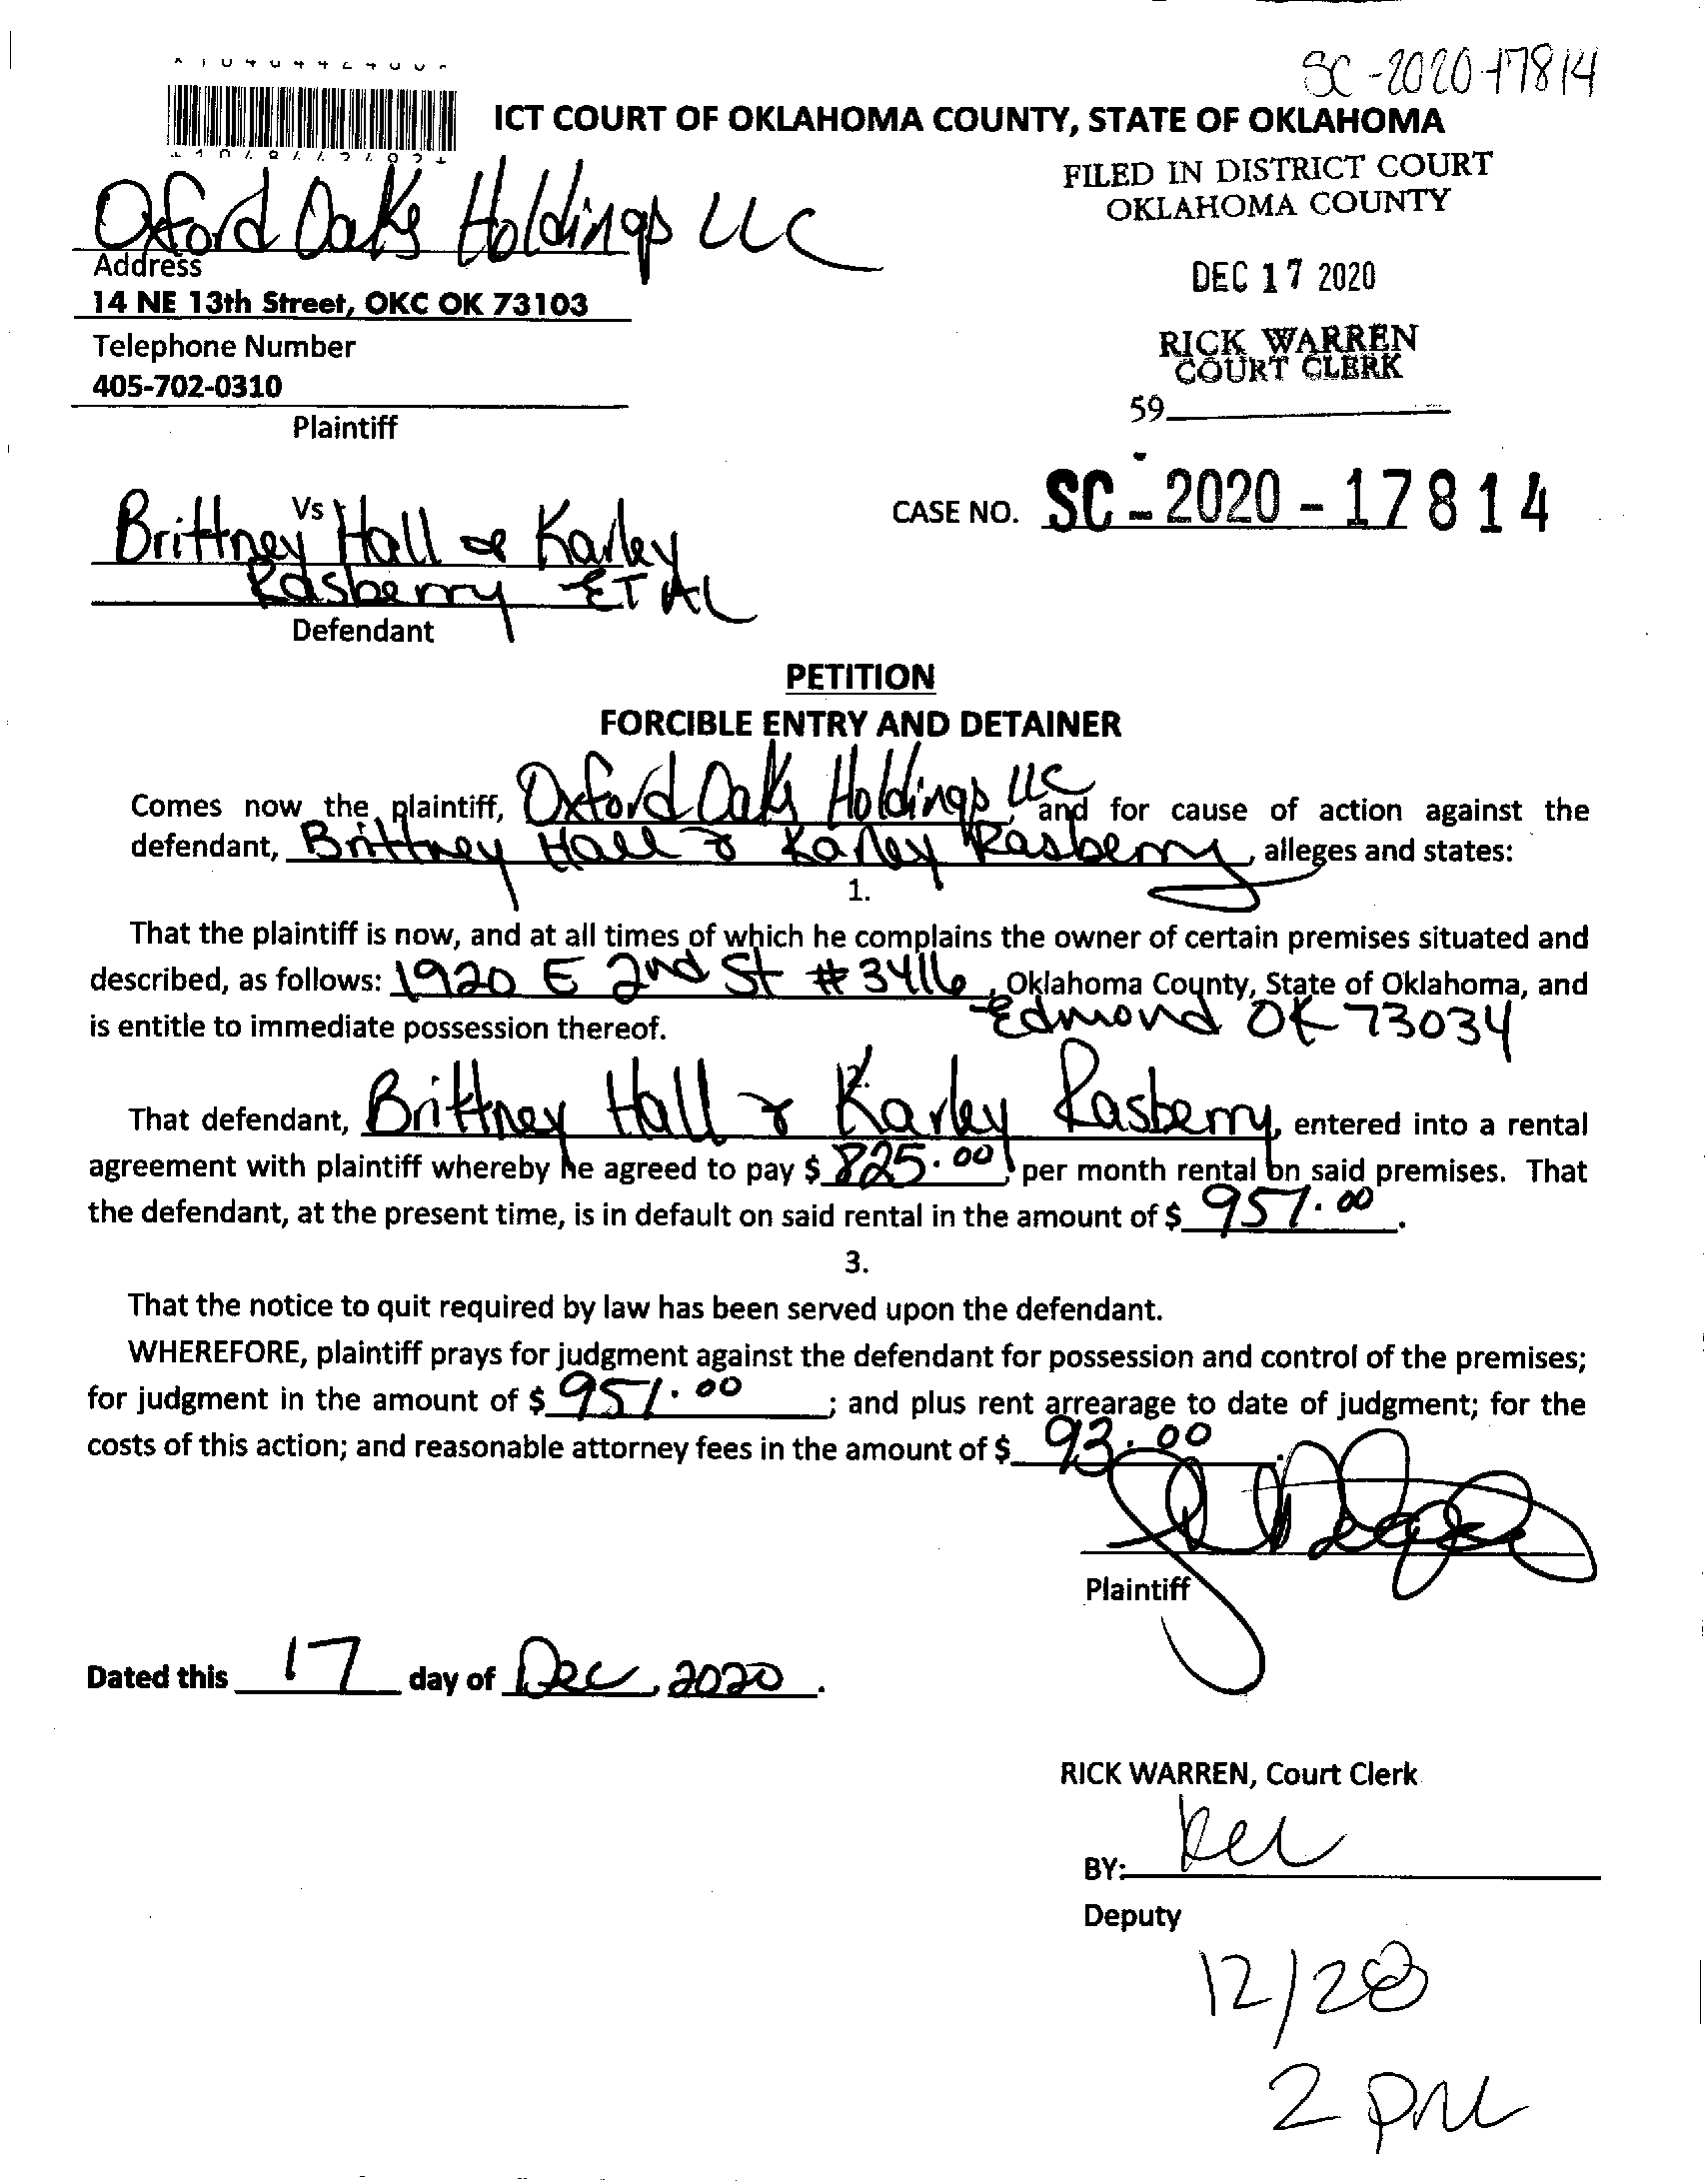 SC-2020-17814
ICT COURT OF OKLAHOMA COUNTY, STATE OF OKLAHOMA
FILED IN DISTRICT COURT
OKLAHOMA COUNTY
Oxford Oaks Holdings LLC
Address
14 NE 13th Street, OKC OK 73103
DEC 17 2020
Telephone Number
RICK WARREN
COURT CLERK
405-702-0310
59
Plaintiff
Vs
CASE NO. SC-2020-17814
Brittney Hall & Karley
Rasberry ET AL
Defendant
PETITION
FORCIBLE ENTRY AND DETAINER
Comes now the plaintiff, Oxford Oaks Holdings LLC, and for cause of action against the
defendant, Brittney Hall & Karley Rasberry, alleges and states:
1.
That the plaintiff is now, and at all times of which he complains the owner of certain premises situated and
described, as follows: 1920 E 2nd St #3416, Oklahoma County, State of Oklahoma, and
Edmond OK 73034
is entitle to immediate possession thereof.
2.
That defendant, Brittney Hall & Karley Rasberry, entered into a rental
agreement with plaintiff whereby he agreed to pay $ 825.00 per month rental on said premises. That
the defendant, at the present time, is in default on said rental in the amount of $ 957.00.
3.
That the notice to quit required by law has been served upon the defendant.
WHEREFORE, plaintiff prays for judgment against the defendant for possession and control of the premises;
for judgment in the amount of $ 957.00; and plus rent arrearage to date of judgment; for the
costs of this action; and reasonable attorney fees in the amount of $ 93.00.
Plaintiff
Dated this 17 day of Dec, 2020.
RICK WARREN, Court Clerk
BY:
Deputy
12/28
2 pm